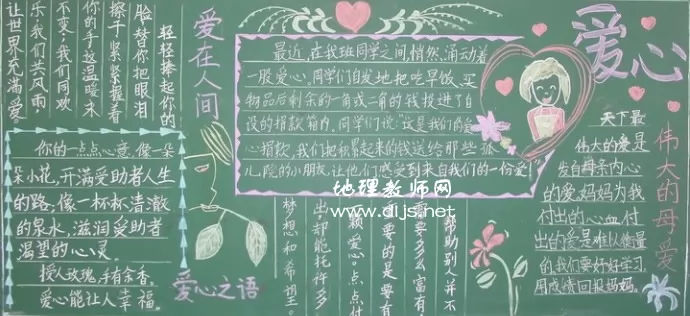 爱心
爱在人间
轻轻捧起你的
脸，替你把眼泪
擦干，紧紧握着
你的手，这温暖永
不变；我们同欢
乐，我们共风雨，
让世界充满爱
最近，在我班同学之间悄然涌动着
一股爱心，同学们自发地把吃早饭、买
物品后剩余的一角或二角的钱投进了自
设的捐款箱内。同学们说"这是我们的爱
心捐款，我们把积累起来的钱送给那些孤
儿院的小朋友，让他们感受到来自我们的一份爱！"
天下最
伟大的母爱
伟大的爱是
发自母亲内心
的爱，妈妈为我
付出的心血，付
出的爱是难以衡量
的，我们要好好学习
用成绩回报妈妈。
你的一点点心意，像一朵
朵小花，开满受助者人生
的路；像一杯杯清澈
的泉水，滋润受助者
渴望的心灵。
授人玫瑰，手有余香。
爱心能让人幸福。
爱心之语
帮助别人并不
需要多么富有，
需要的是要有
颗爱心，点点付
出却能托许多
梦想和希望。
地理教师网
www.dljs.net